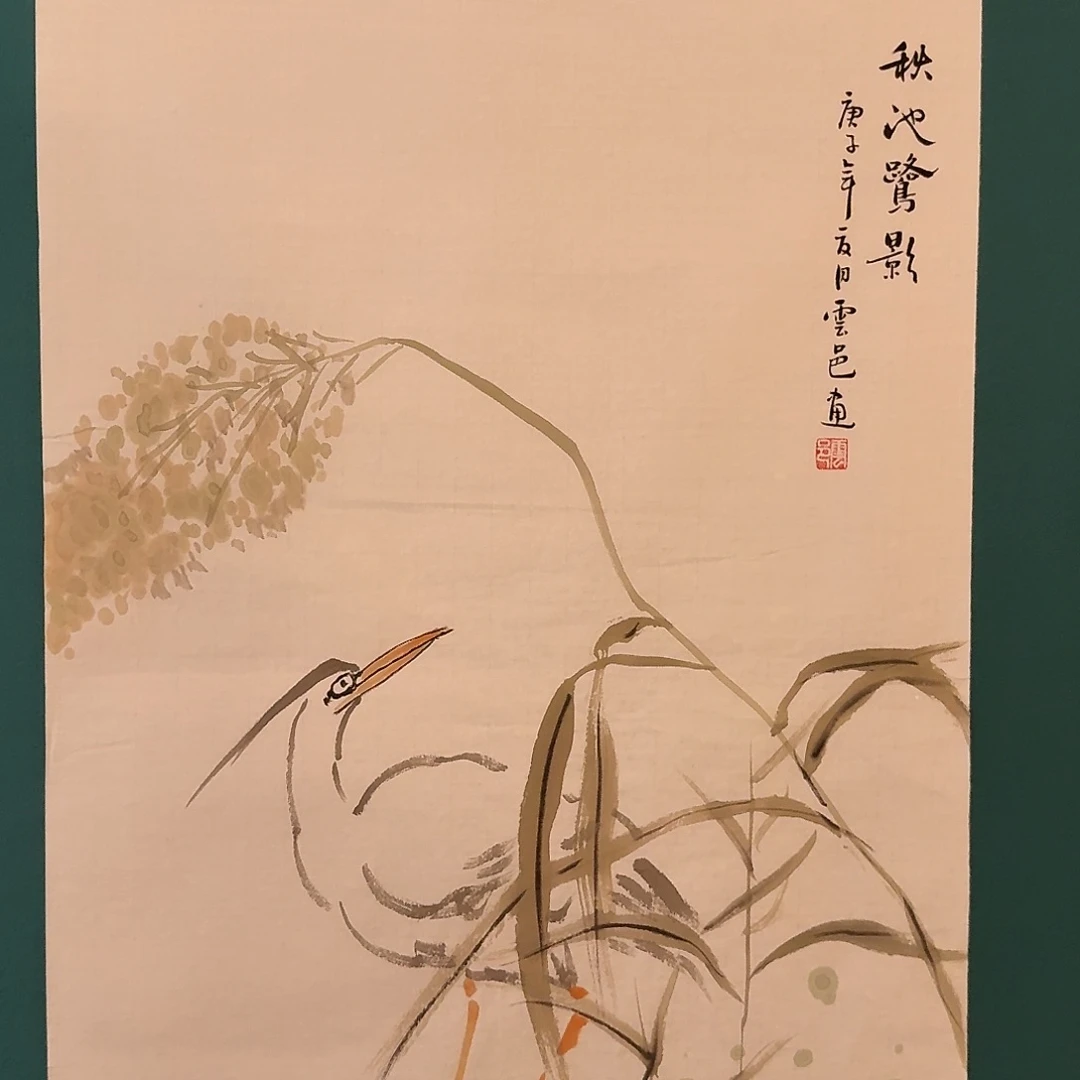 秋池鷺影
庚子年夏月雲邑畫